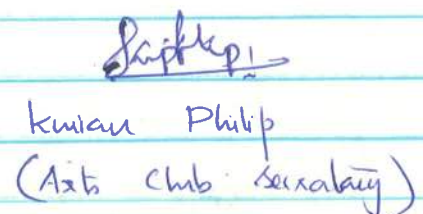 Kurian Philip
(Arts club secretary)